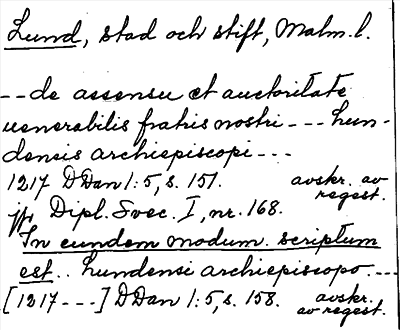 Lund, stad och stift, Malm. l.
-- de assensu et auctoritate
uenerabilis fratris nostri --- Lun-
densis archiepiscopi ---
1217 DDan 1:5, s. 151. avskr. av
regest.
jfr Dipl. Svec. I, nr. 168.
In eundem modum scriptum
est .. Lundensi archiepiscopo. ---
[1217 ---] DDan 1:5, s. 158. avskr.
av regest.